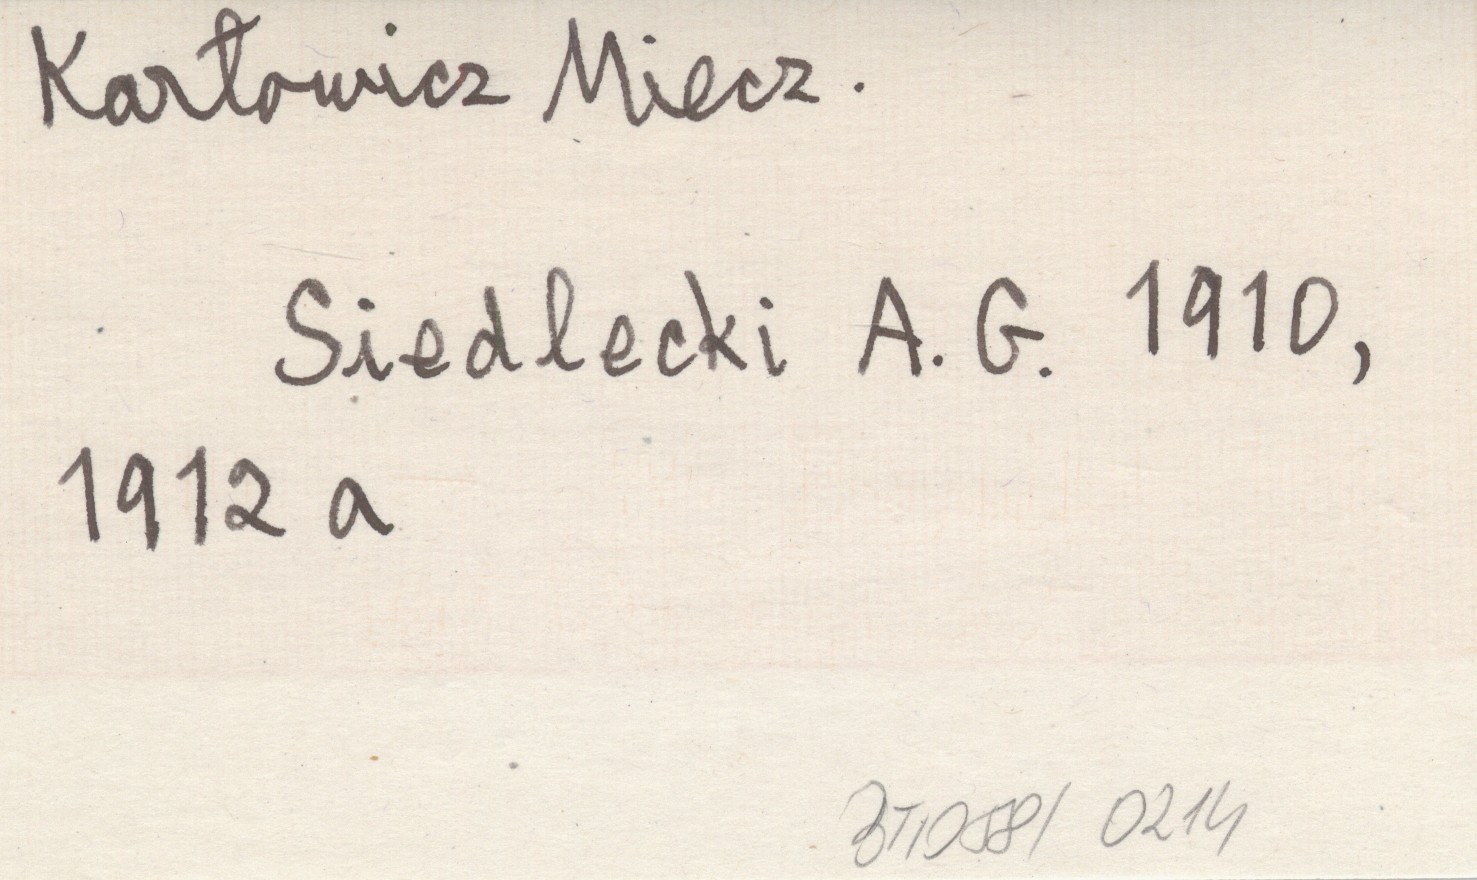 Karłowicz Miecz.
Siedlecki A.G. 1910,
1912 a
0214